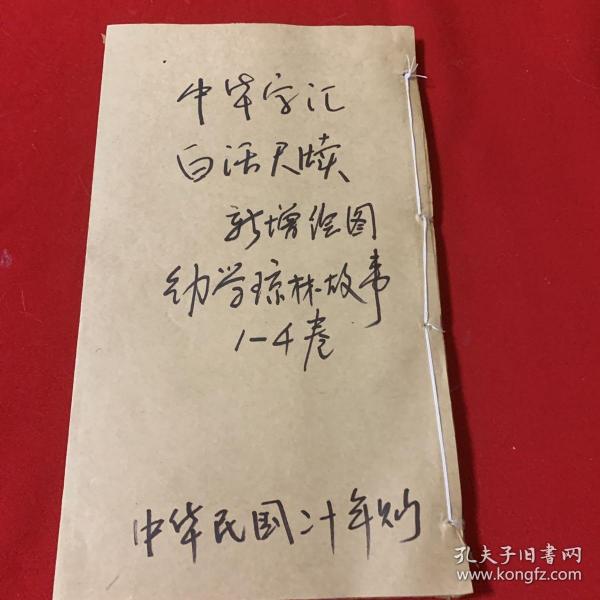 中华字汇
白话尺牍
新增绘图
幼学琼林故事
1-4卷
中华民国二十年
孔夫子旧书网
www.kongfz.com